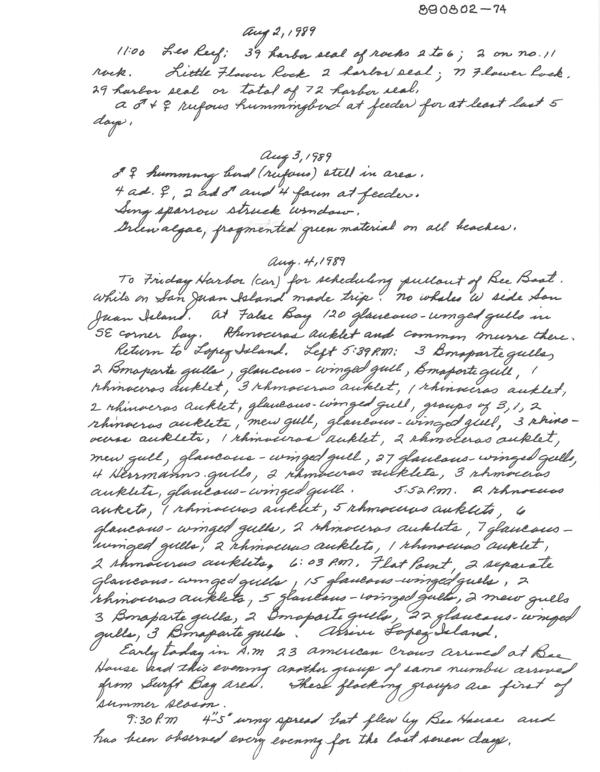 890802-74
Aug 2, 1989
11:00 Leo Reef: 39 harbor seal of rocks 2 to 6; 2 on no. 11
rock. Little Flower Rock 2 harbor seal; N Flower Rock.
29 harbor seal or total of 72 harbor seal.
A ♂ + ♀ rufous hummingbird at feeder for at least last 5
days.
Aug 3, 1989
♂ ♀ humming bird (rufous) still in area.
4 ad. ♀, 2 ad ♂ and 4 fawn at feeder.
Song sparrow struck window.
Green algae, fragmented green material on all beaches.
Aug. 4, 1989
To Friday Harbor (car) for scheduling pullout of Bee Boat.
While on San Juan Island made trip. No whales W side San
Juan Island. At False Bay 120 glaucous-winged gulls in
SE corner bay. Rhinoceros auklet and common murre there.
Return to Lopez Island. Left 5:39 P.M: 3 Bonaparte gulls,
2 Bonaparte gulls, glaucous-winged gull, Bonaparte gull, 1
rhinoceros auklet, 3 rhinoceros auklet, 1 rhinoceros auklet,
2 rhinoceros auklet, glaucous-winged gull, groups of 3, 1, 2
rhinoceros auklets, mew gull, glaucous-winged gull, 3 rhino-
ceros auklets, 1 rhinoceros auklet, 2 rhinoceros auklet,
mew gull, glaucous-winged gull, 27 glaucous-winged gulls,
4 Herrmanns gulls, 2 rhinoceros auklets, 3 rhinoceros
auklets, glaucous-winged gull. 5:52 P.M. 2 rhinoceros
aukets, 1 rhinoceros auklet, 5 rhinoceros auklets, 6
glaucous-winged gulls, 2 rhinoceros auklets, 7 glaucous-
winged gulls, 2 rhinoceros auklets, 1 rhinoceros auklet,
2 rhinoceros auklets, 6:03 P.M. Flat Point, 2 separate
glaucous-winged gulls, 15 glaucous-winged gulls, 2
rhinoceros auklets, 5 glaucous-winged gulls, 2 mew gulls
3 Bonaparte gulls, 2 Bonaparte gulls, 22 glaucous-winged
gulls, 3 Bonaparte gulls. Arrive Lopez Island.
Early today in A.M 23 American Crows arrived at Bee
House and this evening another group of same number arrived
from Surft Bay area. These flocking groups are first of
summer season.
9:30 P.M 4"-5" wing spread bat flew by Bee House and
has been observed every evening for the last seven days.